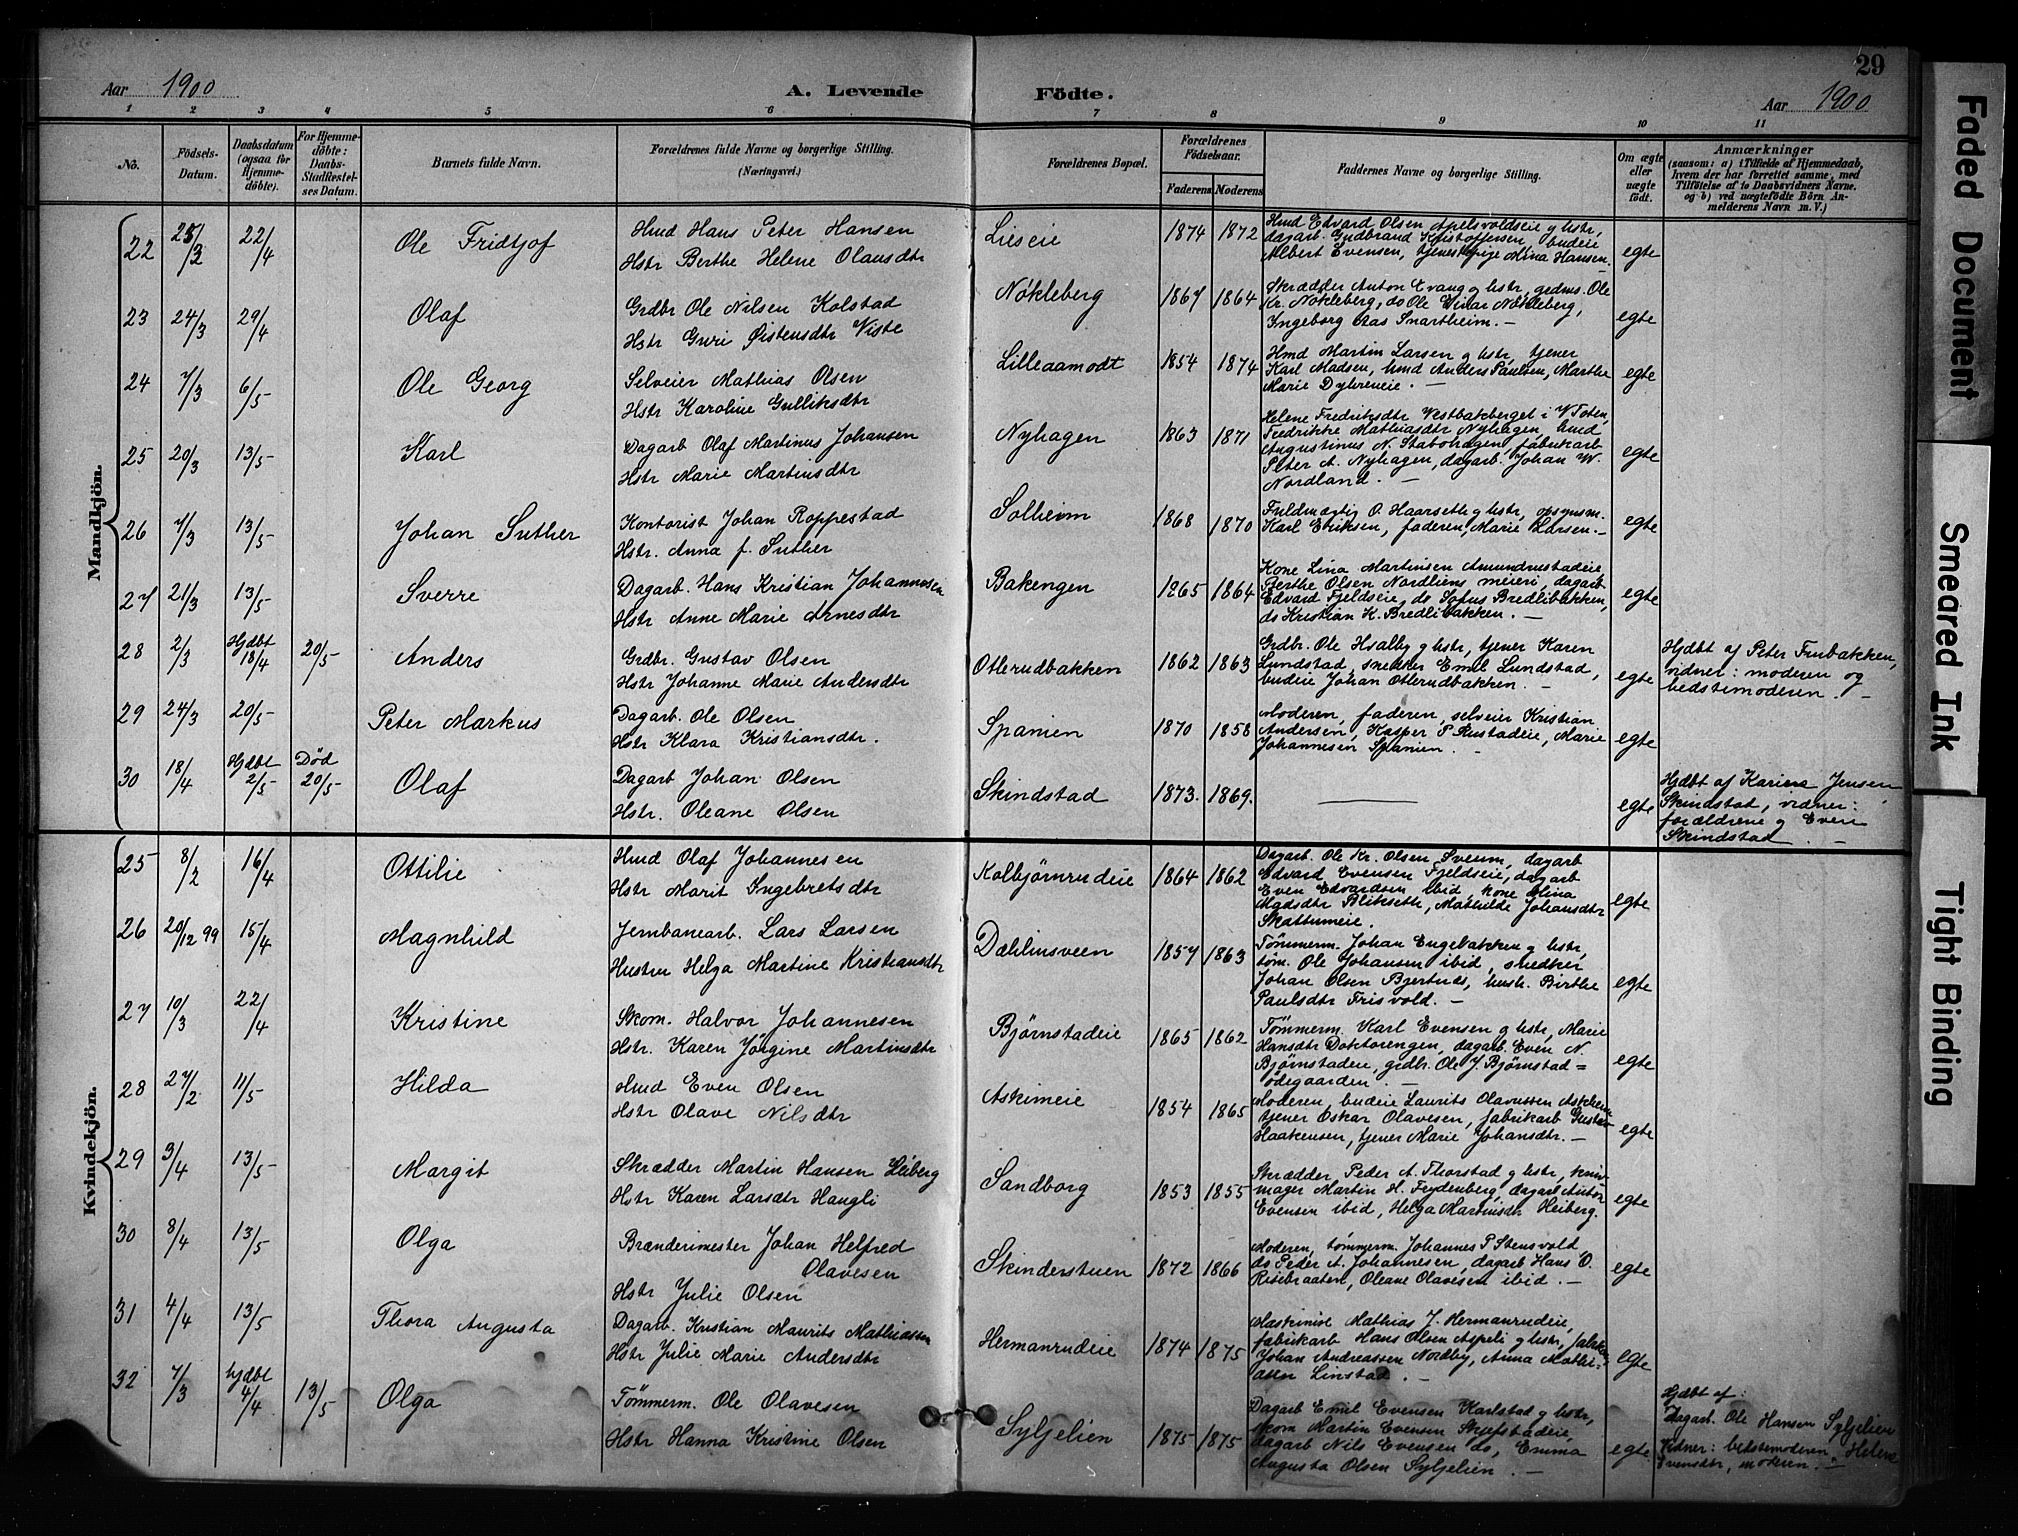 29
Aar 1900
A. Levende Födte.
Aar 1900
1 2 3 4 5 6 7 8 9 10 11
No.
Födsels-Datum.
Daabsdatum (ogsaa for Hjemme-döbte).
For Hjemme-döbte: Daabs-Stadfæstel-ses Datum.
Barnets fulde Navn.
Forældrenes fulde Navne og borgerlige Stilling.
(Næringsvei.)
Forældrenes Bopæl.
Forældrenes Födselsaar.
Faderens Moderens
Faddernes Navne og borgerlige Stilling.
Om ægte eller uægte födt.
Anmærkninger
(saasom: a) i Tilfælde af Hjemmedaab,
hvem der har forrettet samme, med
Tilföielse af to Daabsvidners Navne.
og b) ved uægtefödte Börn An-
melderens Navn m. V.)
Mandkjön.
22 25/3 22/4 Ole Fridtjof
Hmd Hans Peter Hansen
Hstr Berthe Helene Olausdtr
Lieseie 1874 1872
Hmd Edvard Olsen Apelsvoldseie g hstr,
dagarb. Gudbrand Kristoffersen budeie
Albert Evensen, tjenestepige Mina Hansen
egte
23 24/3 29/4 Olaf
Grdbr Ole Nilsen Kolstad
Hstr Guri Østensdtr Viste
Nökleberg 1867 1864
Skrædder Anton Evang g hstr, grdms. Ole
Kr. Nökleberg, do Ole Einar Nökleberg,
Ingeborg Aas Snartheim. –
egte
24 7/3 6/5 Ole Georg
Selveier Mathias Olsen
Hstr Karoline Gulliksdtr
Lilleaamodt 1854 1874
Hmd Martin Larsen g hstr, tjener
Karl Madsen, hmd Anders Paulsen, Marthe
Marie Dybreneie. –
egte
25 20/3 13/5 Karl
Dagarb Olaf Martinus Johansen
Hstr Marie Martinsdtr
Nyhagen 1863 1871
Helene Fredriksdtr Vestbakberget i V Toten,
Fredrikke Mathiasdtr Nyhagen, hmd
Augustinus N. Stabohagen, fabrikarb
Peter A. Nyhagen, dagarb. Johan W.
Nordland. –
egte
26 7/3 13/5 Johan Suther
Kontorist Johan Roppestad
Hstr. Anna f. Suther
Solheim 1868 1870
Fuldmægtig O. Haarseth g hstr, opsynsm.
Karl Eriksen, faderen, Marie Larsen. –
egte
27 21/3 13/5 Sverre
Dagarb. Hans Kristian Johannesen
Hstr Anne Marie Arnesdtr
Bakengen 1865 1864
Kone Lina Martinsen Amundrustadeie,
Berthe Olsen Nordliens meieri, dagarb
Edvard Fjeldseie, do Sofus Bredlibakken,
do Kristian K. Bredlibakken. –
egte
28 2/3 Hjdbt 18/4 20/5 Anders
Grdbr. Gustav Olsen
Hstr Johanne Marie Andersdtr
Otterudbakken 1862 1863
Grdbr. Ole Hsalby g hstr, tjener Karen
Lundstad, snekker Emil Lundstad,
budeie Johan Otterudbakken. –
egte
Hjdbt af Peter Frubakken,
vidner: moderen og
bedstemoderen. –
29 24/3 20/5 Peter Markus
Dagarb. Ole Olsen
Hstr Klara Kristiansdtr.
Spanien 1870 1858
Moderen, faderen, selveier Kristian
Andersen, Kasper P. Rustadeie, Marie
Johannesen Spanien. –
egte
30 18/4 Hjdbt 2/5 Död 20/5 Olaf
Dagarb Johan Olsen
Hstr. Oleane Olsen
Skindstad 1873. 1869.
egte
Hjdbt af Karine Jensen
Skindstad, vidner:
forældrene g Even
Skindstad. –
Kvindekjön.
25 8/2 16/4 Ottilie
Hmd Olaf Johannesen
Hstr Marit Ingebretsdtr
Kolbjörnrudeie 1864 1862
Dagarb. Ole Kr. Olsen Sveum, dagarb
Edvard Evensen Fjeldseie, dagarb
Even Edvardsen ibid, kone Mina
Madsdtr Blikseth, Mathilde Johansdtr
Skattumeie.
egte
26 20/12 99 15/4 Magnhild
Jernbanearb. Lars Larsen
Hustru Helga Martine Kristiansdtr
Dæhlinsveen 1857 1863
Tömmerm. Johan Engebakken g hstr,
töm. Ole Johansen ibid, snedker
Johan Olsen Bjertnæs, hush. Birthe
Paulsdtr Frisvold. –
egte
27 10/3 22/4 Kristine
Skom. Halvor Johannesen
Hstr. Karen Jörgine Martinsdtr
Björnstadeie 1865 1862
Tömmerm. Karl Evensen g hstr, Marie
Hansdtr Doktorengen, dagarb. Even N.
Björnstadeie, grdbr. Ole J. Björnstad=
ödegaarden. –
egte
28 27/2 11/5 Hilda
Hmd Even Olsen
Hstr Olave Nilsdtr
Askimeie 1854 1865
Moderen, budeie Laurits Olavessen Askheim
tjener Oskar Olavesen, fabrikarb Gustav
Haakensen, tjener Marie Johansdtr. –
egte
29 3/4 13/5 Margit
Skrædder Martin Hansen Heiberg
Hstr Karen Larsdtr Haugli
Sandborg 1853 1855
Skrædder Peder A. Thorstad g hstr, kniv-
mager Martin H. Frydenberg, dagarb Anton
Evensen ibid, Helga Martinsdtr Heiberg.
egte
30 8/4 13/5 Olga
Brænderimester Johan Helfred
Olavesen
Hstr Julie Olsen
Skinderstuen 1872 1866
Moderen, tömmerm. Johannes P Stensvold
do Peder A. Johannesen, dagarb Hans O.
Risebraaten, Oleane Olavesen ibid. –
egte
31 4/4 13/5 Thora Augusta
Dagarb. Kristian Maurits Mathiassen
Hstr Julie Marie Andersdtr
Hermanrudeie 1874 1875
Maskinist Mathias J. Hermanrudeie,
fabrikarb Hans Olsen Aspeli g hstr, fabrikarb
Johan Andreassen Nordby, Anna Mathi-
asen Linstad. –
egte
32 7/3 hjdbt 4/4 13/5 Olga
Tömmerm. Ole Olavesen
Hstr Hanna Kristine Olsen
Syljelien 1875 1875
Dagarb Emil Evensen Karlstad g hstr,
skom Martin Evensen Skjefstadeie,
dagarb Nils Evensen do, Emma
Augusta Olsen Syljelien. –
egte
Hjdbt af:
Dagarb. Ole Hansen Syljelien
Vidner: bedstemoderen Helene
Svensdtr, moderen. –
Faded Document
Smeared Ink
Tight Binding